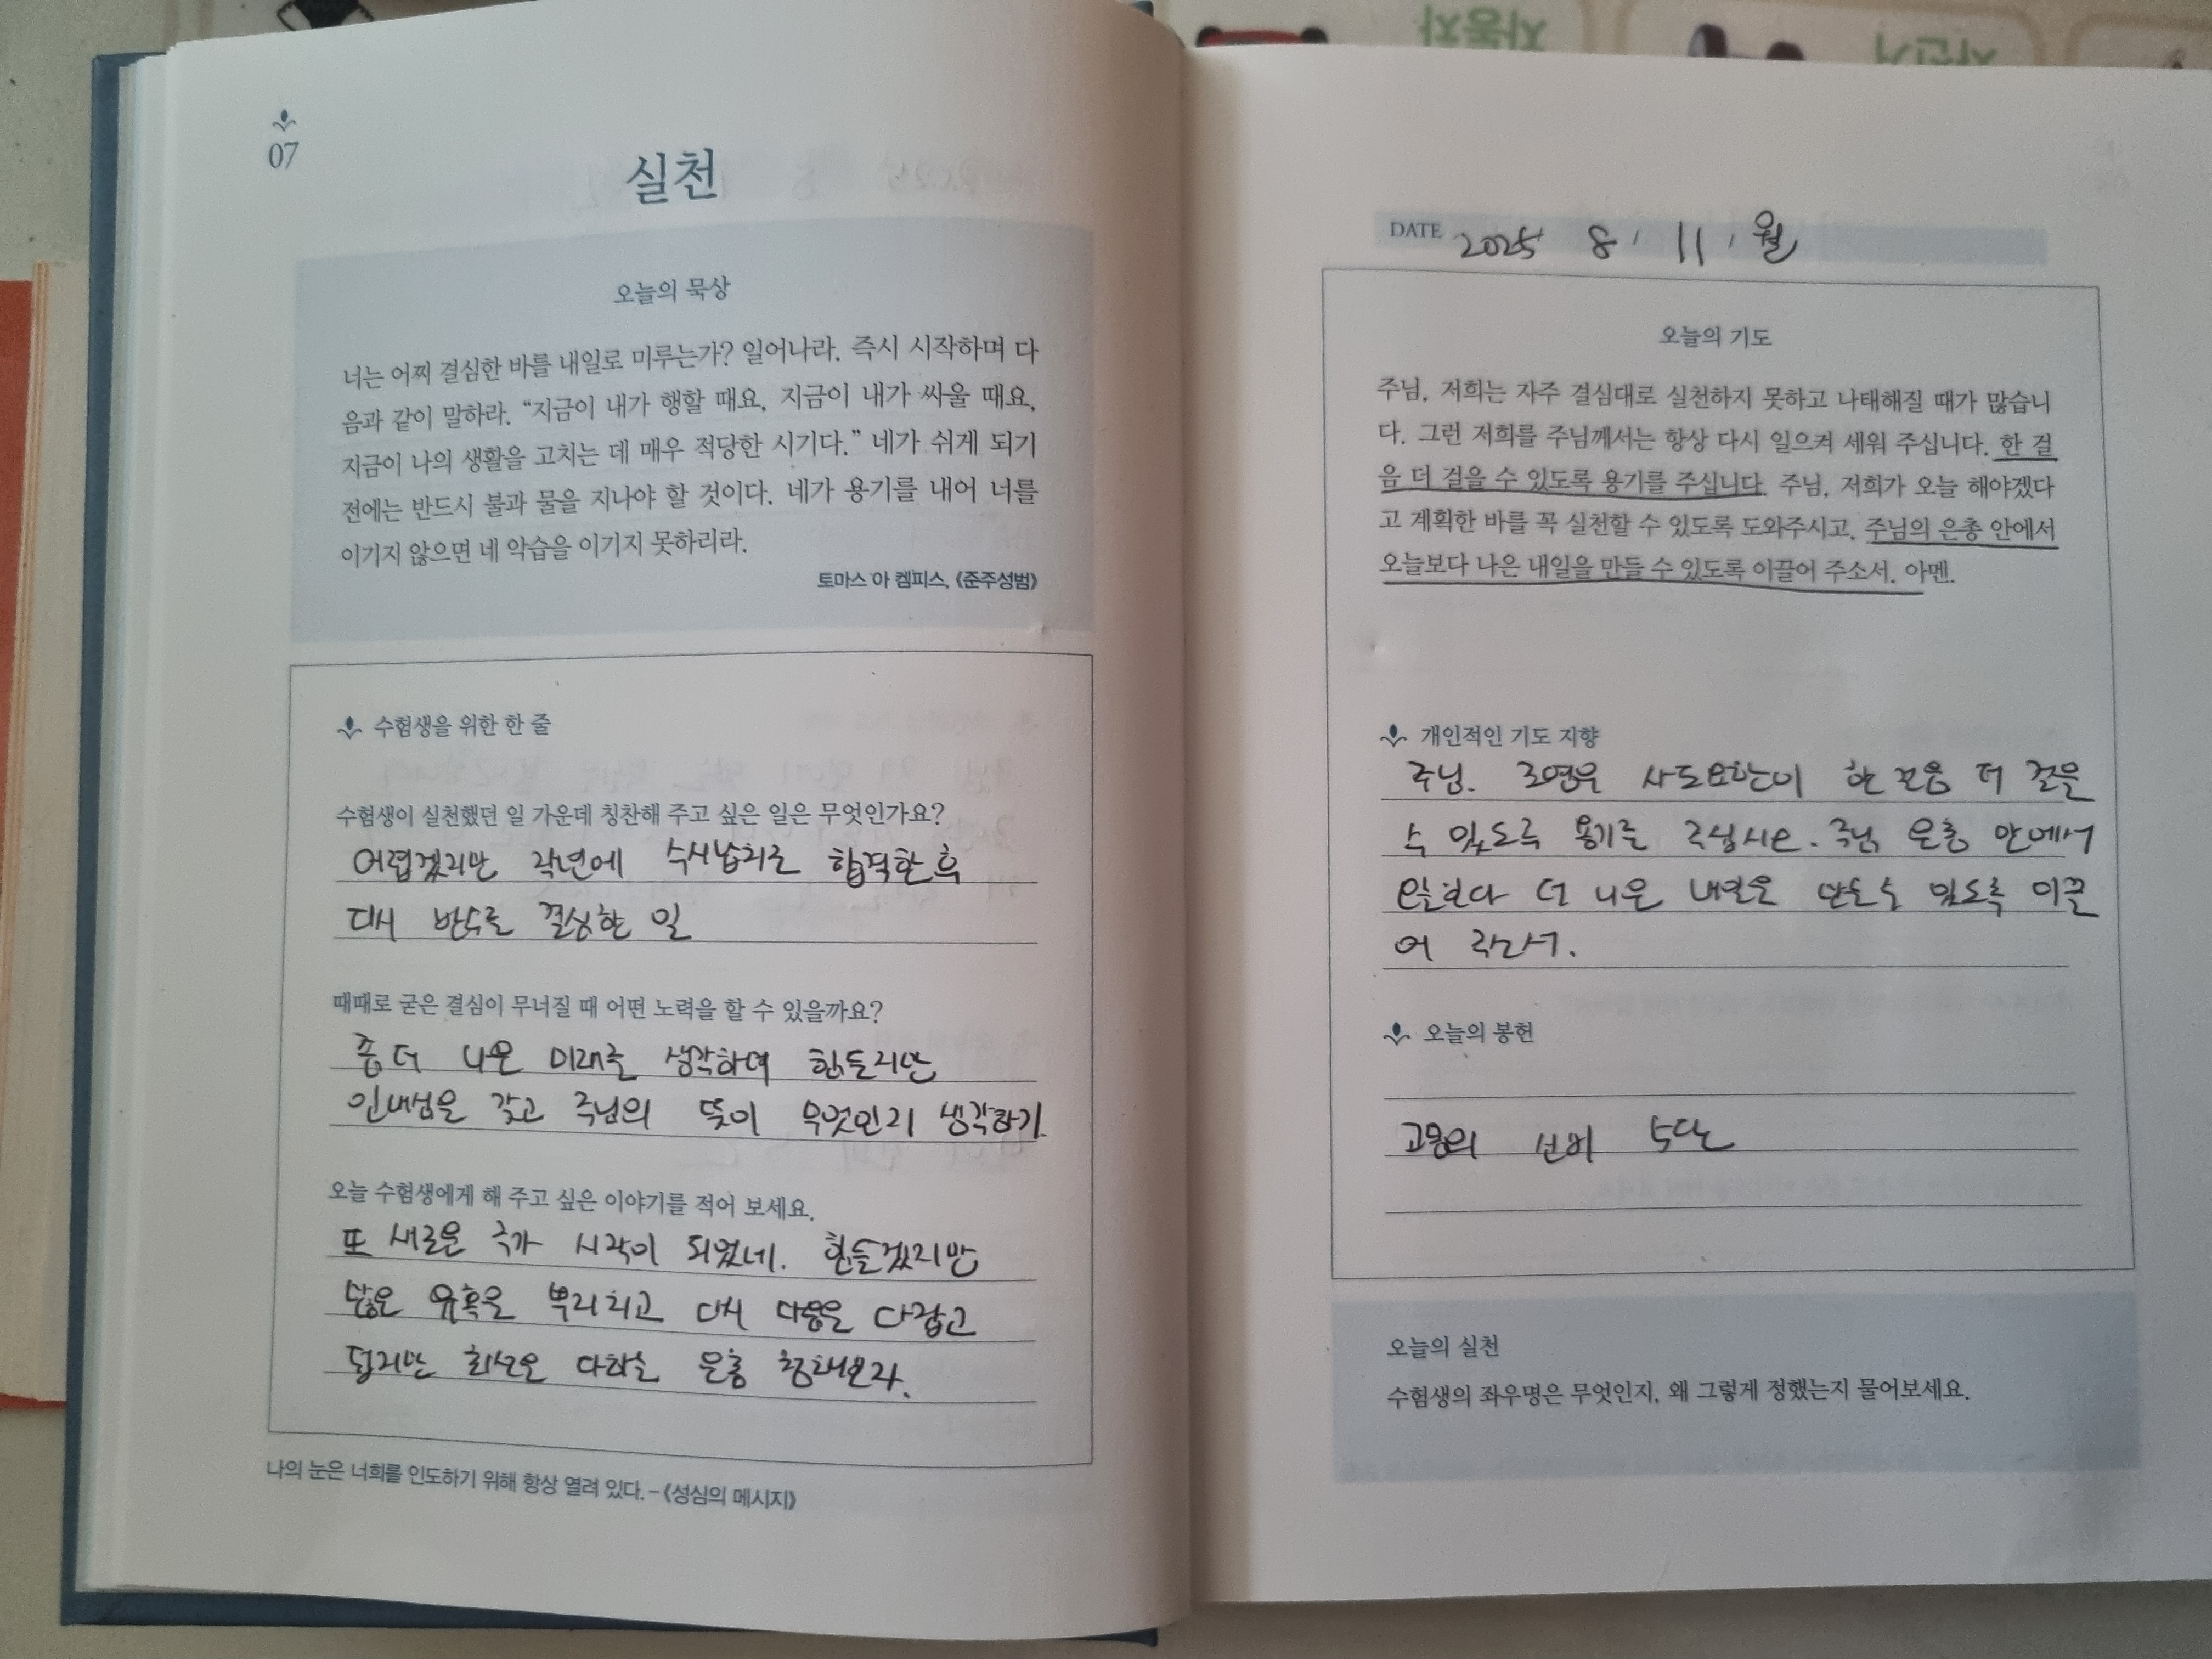 07
실천
오늘의 묵상
너는 어찌 결심한 바를 내일로 미루는가? 일어나라. 즉시 시작하며 다
음과 같이 말하라. “지금이 내가 행할 때요, 지금이 내가 싸울 때요,
지금이 나의 생활을 고치는 데 매우 적당한 시기다.” 네가 쉬게 되기
전에는 반드시 불과 물을 지나야 할 것이다. 네가 용기를 내어 너를
이기지 않으면 네 악습을 이기지 못하리라.
토마스 아 켐피스, 《준주성범》
수험생을 위한 한 줄
수험생이 실천했던 일 가운데 칭찬해 주고 싶은 일은 무엇인가요?
어렵겠지만 작년에 수시납치로 합격한 후
다시 반수를 결심한 일
때때로 굳은 결심이 무너질 때 어떤 노력을 할 수 있을까요?
좀 더 나은 미래를 생각하며 힘들지만
인내심을 갖고 주님의 뜻이 무엇인지 생각하기.
오늘 수험생에게 해 주고 싶은 이야기를 적어 보세요.
또 새로운 주가 시작이 되었네. 힘들겠지만
많은 유혹을 뿌리치고 다시 마음을 다잡고
덥지만 최선을 다하는 은총 청해보자.
나의 눈은 너희를 인도하기 위해 항상 열려 있다. - 《성심의 메시지》
DATE 2025 8, 11, 월
오늘의 기도
주님, 저희는 자주 결심대로 실천하지 못하고 나태해질 때가 많습니
다. 그런 저희를 주님께서는 항상 다시 일으켜 세워 주십니다. 한 걸
음 더 걸을 수 있도록 용기를 주십니다. 주님, 저희가 오늘 해야겠다
고 계획한 바를 꼭 실천할 수 있도록 도와주시고, 주님의 은총 안에서
오늘보다 나은 내일을 만들 수 있도록 이끌어 주소서. 아멘.
개인적인 기도 지향
주님. 사도요한이 한 걸음 더 걸을
수 있도록 용기를 주십시오. 주님 은총 안에서
오늘보다 더 나은 내일을 만들 수 있도록 이끌
어 주소서.
오늘의 봉헌
고통의 신비 5단
오늘의 실천
수험생의 좌우명은 무엇인지, 왜 그렇게 정했는지 물어보세요.
자동차
자전거